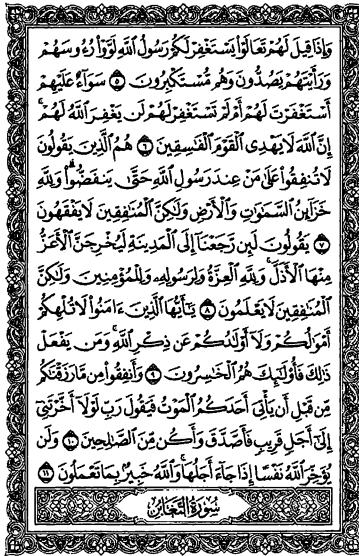 وَإِذَا قِيلَ لَهُمْ تَعَالَوْا۟ يَسْتَغْفِرْ لَكُمْ رَسُولُ ٱللَّهِ لَوَّوْا۟ رُءُوسَهُمْ
وَرَأَيْتَهُمْ يَصُدُّونَ وَهُم مُّسْتَكْبِرُونَ ٥ سَوَآءٌ عَلَيْهِمْ
أَسْتَغْفَرْتَ لَهُمْ أَمْ لَمْ تَسْتَغْفِرْ لَهُمْ لَن يَغْفِرَ ٱللَّهُ لَهُمْ ۚ
إِنَّ ٱللَّهَ لَا يَهْدِى ٱلْقَوْمَ ٱلْفَـٰسِقِينَ ٦ هُمُ ٱلَّذِينَ يَقُولُونَ
لَا تُنفِقُوا۟ عَلَىٰ مَنْ عِندَ رَسُولِ ٱللَّهِ حَتَّىٰ يَنفَضُّوا۟ ۗ وَلِلَّهِ
خَزَآئِنُ ٱلسَّمَـٰوَٰتِ وَٱلْأَرْضِ وَلَـٰكِنَّ ٱلْمُنَـٰفِقِينَ لَا يَفْقَهُونَ
٧ يَقُولُونَ لَئِن رَّجَعْنَآ إِلَى ٱلْمَدِينَةِ لَيُخْرِجَنَّ ٱلْأَعَزُّ
مِنْهَا ٱلْأَذَلَّ ۚ وَلِلَّهِ ٱلْعِزَّةُ وَلِرَسُولِهِۦ وَلِلْمُؤْمِنِينَ وَلَـٰكِنَّ
ٱلْمُنَـٰفِقِينَ لَا يَعْلَمُونَ ٨ يَـٰٓأَيُّهَا ٱلَّذِينَ ءَامَنُوا۟ لَا تُلْهِكُمْ
أَمْوَٰلُكُمْ وَلَآ أَوْلَـٰدُكُمْ عَن ذِكْرِ ٱللَّهِ ۚ وَمَن يَفْعَلْ
ذَٰلِكَ فَأُو۟لَـٰٓئِكَ هُمُ ٱلْخَـٰسِرُونَ ٩ وَأَنفِقُوا۟ مِن مَّا رَزَقْنَـٰكُم
مِّن قَبْلِ أَن يَأْتِىَ أَحَدَكُمُ ٱلْمَوْتُ فَيَقُولَ رَبِّ لَوْلَآ أَخَّرْتَنِىٓ
إِلَىٰٓ أَجَلٍ قَرِيبٍ فَأَصَّدَّقَ وَأَكُن مِّنَ ٱلصَّـٰلِحِينَ ١٠ وَلَن
يُؤَخِّرَ ٱللَّهُ نَفْسًا إِذَا جَآءَ أَجَلُهَا ۚ وَٱللَّهُ خَبِيرٌۢ بِمَا تَعْمَلُونَ ١١
سُورَةُ ٱلتَّغَابُنِ